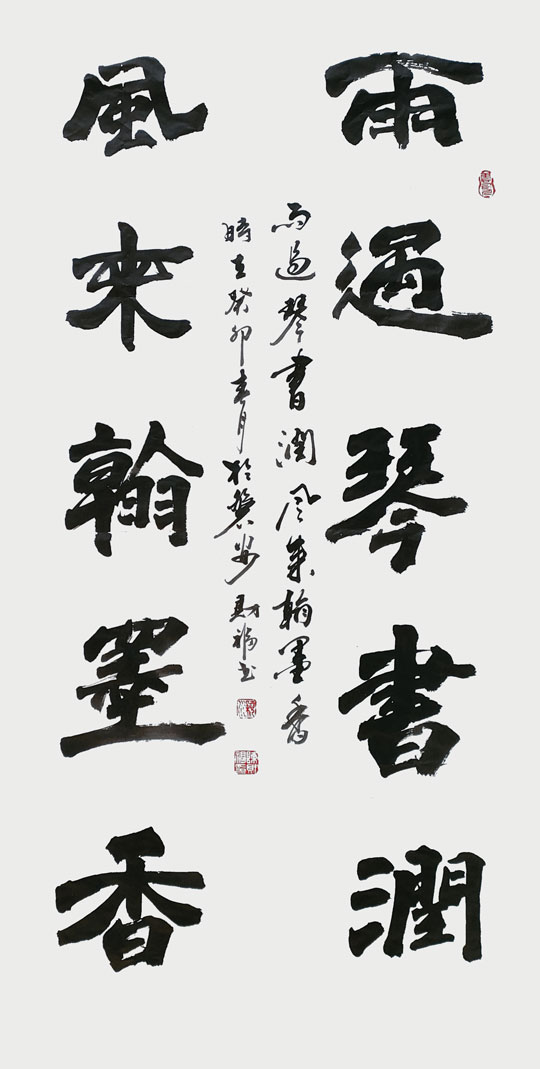 雨過琴書潤
風來翰墨香
雨過琴書潤風來翰墨香
時在癸卯春月於賀安財福書